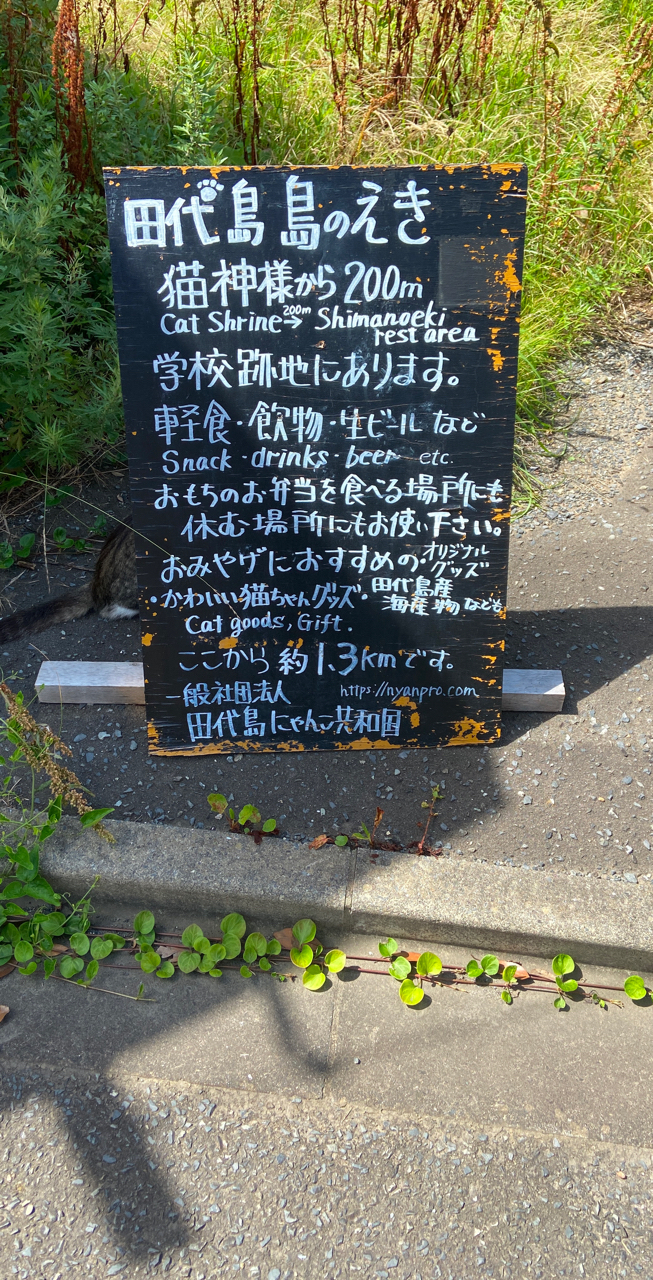 田代島 島のえき
猫神様から200m
Cat Shrine 200m→ Shimanoeki
rest area
学校跡地にあります。
軽食・飲物・生ビール など
Snack・drinks・beer etc.
おもちのお弁当を食べる場所にも
休む場所にもお使い下さい。
おみやげにおすすめの・オリジナルグッズ
・かわいい猫ちゃんグッズ・田代島産海産物なども
Cat goods, Gift.
ここから 約1.3kmです。
一般社団法人 https://nyanpro.com
田代島にゃんこ共和国